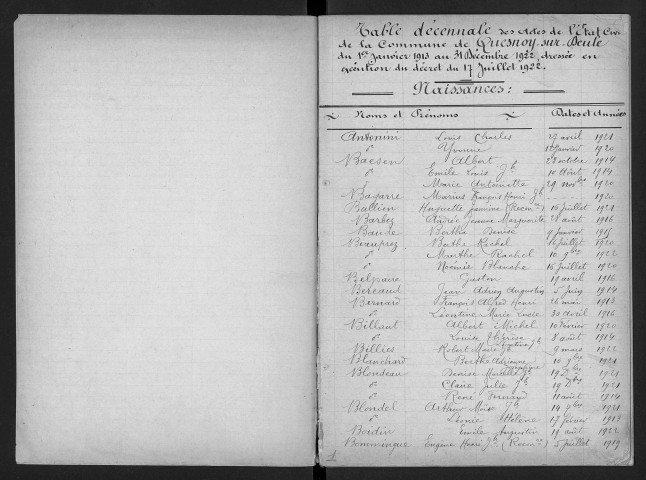 Table décennale des Actes de l'Etat Civ
de la Commune de Quesnoy-sur-Deule
du 1er Janvier 1913 au 31 Décembre 1922, dressée en
exécution du décret du 17 Juillet 1922.
Naissances:
Noms et Prénoms Dates et Années
Antonini Louis Charles 27 avril 1921
d° Yvonne 12 janvier 1920
Baesen Albert 28 octobre 1914
d° Emile Louis Jh 10 Août 1914
d° Marie Antoinette 29 novbre 1920
Bagarre Marius François Henri Jh 1920
Ballien Huguette Jeannine (Recon) 16 juillet 1921
Barbez Andrée Jeanne Marguerite 28 août 1916
Baude Berthe Denise 9 janvier 1915
Beauprez Berthe Rachel 16 juillet 1920
d° Marthe Rachel 10 9bre 1922
d° Noémie Blanche 16 juillet 1920
Belpaire Gaston 19 avril 1916
Bereaud Jean Adrien Augustin juin 1914
Bernard François Alfred Henri 26 mai 1913
d° Léontine Marie Lucie 30 avril 1916
Billaut Albert Michel 10 février 1920
d° Louise Thérèse 8 août 1914
Billies Robert Marie Jh 9 mars 1922
Blanchard Berthe Adrienne 10 9bre 1921
Blondeau Denise Marcelle 1921
d° Clane Julie Jh 19 7bre 1921
d° René Fernand 11 août 1914
Blondel Arthur Moïse Jh 14 9bre 1921
d° Léonie Hélène 17 février 1913
Boidin Emile Augustin 19 août 1922
Bommingue Eugène Henri Jh (Recon) 5 juillet 1919
1